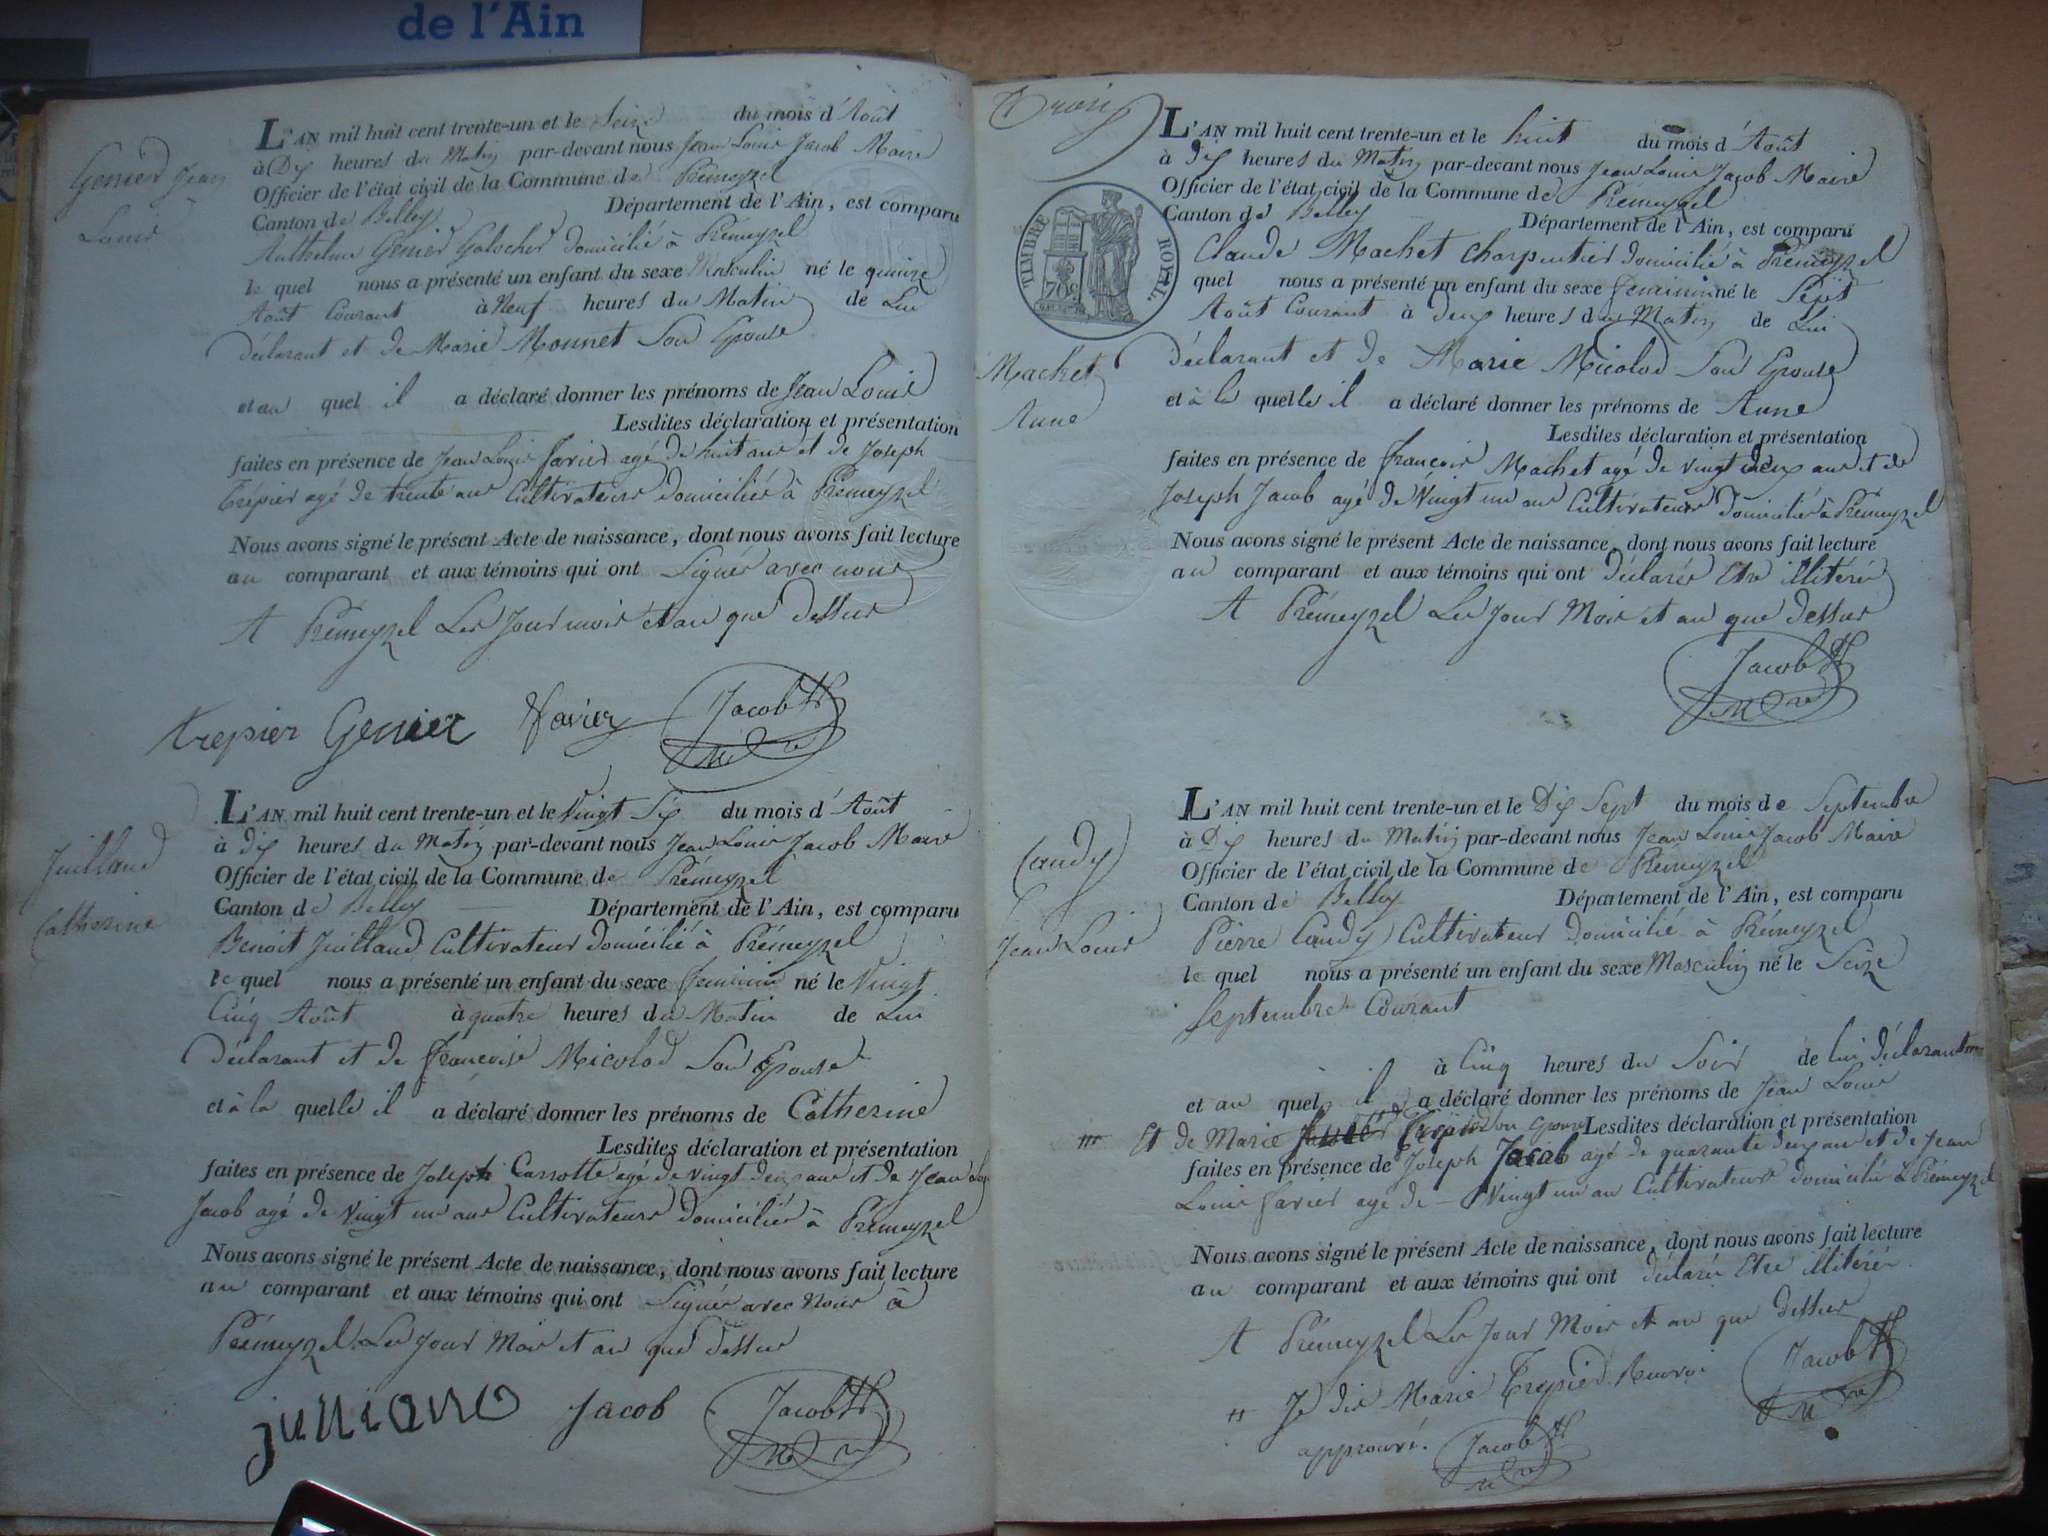 de l'Ain
Genier Jean
Louis
L'AN mil huit cent trente-un et le Seize du mois d'Août
à Dix heures du Matin par-devant nous Jean Louis Jacob Maire
Officier de l'état civil de la Commune de Prémeyzel
Canton de Belley Département de l'Ain, est comparu
Anthelme Genier Galocher domicilié à Prémeyzel
le quel nous a présenté un enfant du sexe Masculin né le quinze
Août Courant à Neuf heures du Matin de Lui
déclarant et de Marie Monnet Son Epouse
et au quel il a déclaré donner les prénoms de Jean Louis
Lesdites déclaration et présentation
faites en présence de Jean Louis Favier agé de huit ans et de Joseph
Trépier agé de trente ans Cultivateurs domiciliés à Prémeyzel
Nous avons signé le présent Acte de naissance, dont nous avons fait lecture
au comparant et aux témoins qui ont Signés avec nous
A Prémeyzel Les Jour mois et an que dessus
trepier Genier favier Jacob
Juilland
Catherine
L'AN mil huit cent trente-un et le Vingt Six du mois d'Août
à dix heures du Matin par-devant nous Jean Louis Jacob Maire
Officier de l'état civil de la Commune de Prémeyzel
Canton de Belley Département de l'Ain, est comparu
Benoit Juilland Cultivateur domicilié à Prémeyzel
le quel nous a présenté un enfant du sexe feminin né le Vingt
Cinq Août à quatre heures du Matin de Lui
déclarant et de françoise Micolod Son Epouse
et à la quelle il a déclaré donner les prénoms de Catherine
Lesdites déclaration et présentation
faites en présence de Joseph Carrotte agé de vingt deux ans et de Jean
Jacob agé de Vingt un ans Cultivateurs domiciliés à Prémeyzel
Nous avons signé le présent Acte de naissance, dont nous avons fait lecture
au comparant et aux témoins qui ont Signés avec Nous à
Prémeyzel Les Jour Mois et an que dessus
Jacob Jacob
Trois
TIMBRE ROYAL.
70c
L'AN mil huit cent trente-un et le huit du mois d'Août
à dix heures du Matin par-devant nous Jean Louis Jacob Maire
Officier de l'état civil de la Commune de Prémeyzel
Canton de Belley Département de l'Ain, est comparu
Claude Machet Charpentier domicilié à Prémeyzel
quel nous a présenté un enfant du sexe feminin né le Sept
Août Courant à deux heures du Matin de Lui
Machet
Anne
déclarant et de Marie Micolod Son Epouse
et à la quelle il a déclaré donner les prénoms de Anne
Lesdites déclaration et présentation
faites en présence de françois Machet agé de vingt deux ans et de
Joseph Jacob agé de Vingt un ans Cultivateurs domiciliés à Prémeyzel
Nous avons signé le présent Acte de naissance, dont nous avons fait lecture
au comparant et aux témoins qui ont déclarés Etre illitérés
A Prémeyzel Les Jour Mois et an que dessus
Jacob
Caudy
Jean Louis
L'AN mil huit cent trente-un et le Dix Sept du mois de Septembre
à Dix heures du Matin par-devant nous Jean Louis Jacob Maire
Officier de l'état civil de la Commune de Prémeyzel
Canton de Belley Département de l'Ain, est comparu
Pierre Caudy Cultivateur domicilié à Prémeyzel
le quel nous a présenté un enfant du sexe Masculin né le Seize
Septembre Courant
à Cinq heures du Soir de lui déclarant
et au quel il a déclaré donner les prénoms de Jean Louis
Et de Marie Trepier Son Epouse Lesdites déclaration et présentation
faites en présence de Joseph Jacob agé de quarante deux ans et de Jean
Louis favier agé de Vingt un an Cultivateurs domiciliés à Prémeyzel
Nous avons signé le présent Acte de naissance, dont nous avons fait lecture
au comparant et aux témoins qui ont déclarés Etre illitérés
A Prémeyzel Les Jour Mois et an que dessus
Je dis Marie Trepier Renvoi
approuvé. Jacob
Jacob